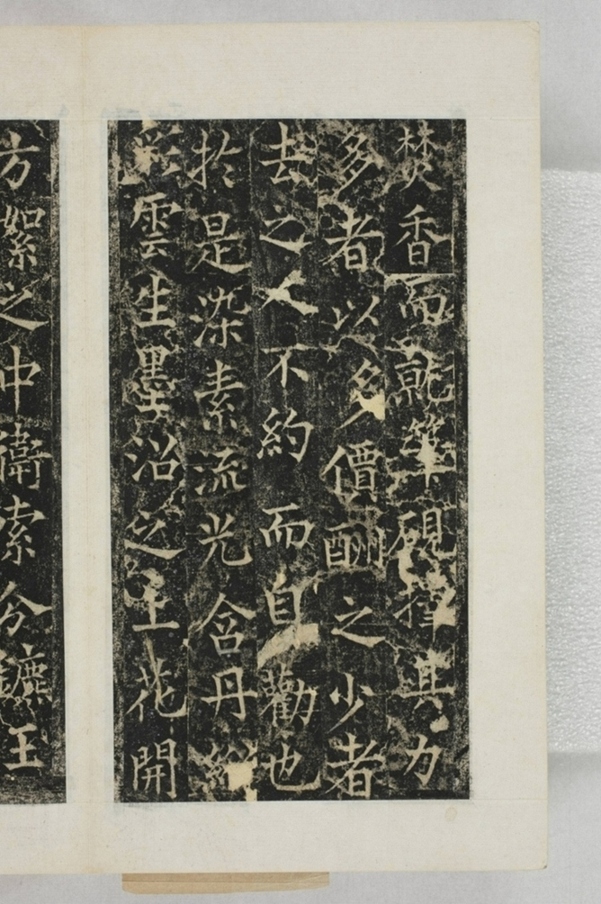 焚香而就筆硯擇其力
多者以多價酬之少者
去之人不約而自勸也
於是染素流光含丹
彩雲生墨沼之上花開
方絮之中衛索分鑣王